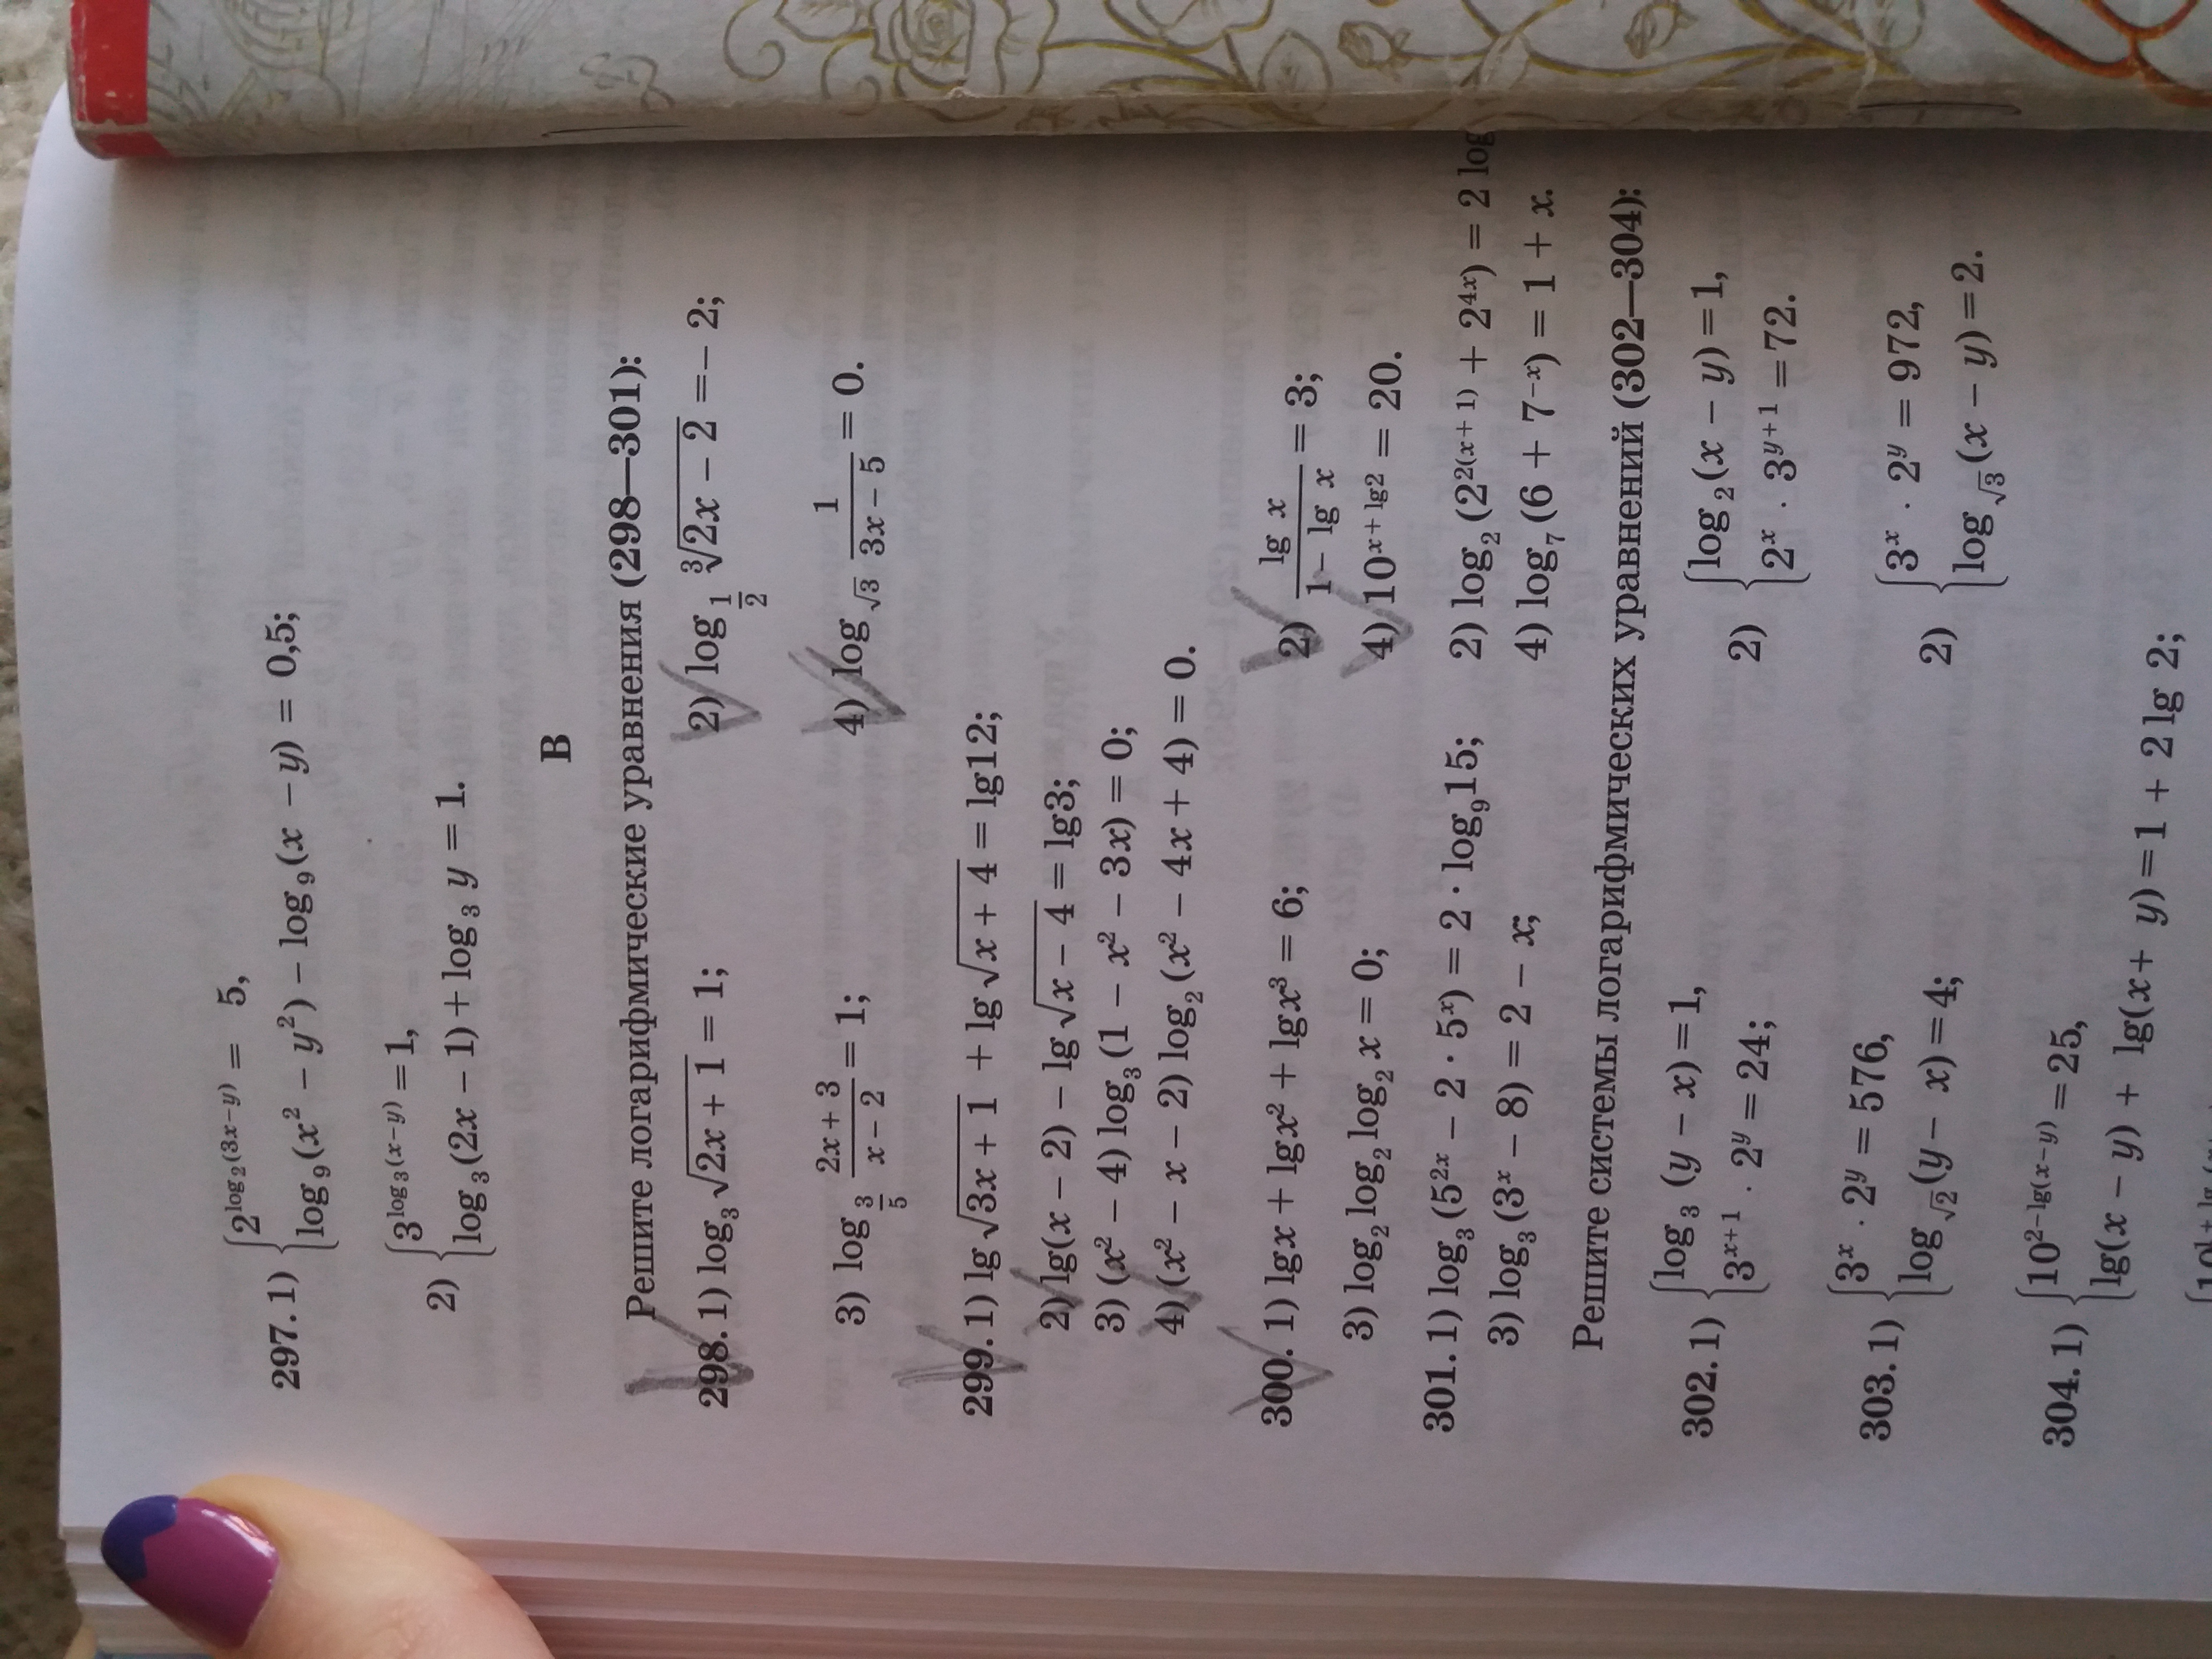 297. 1) { 2^{log₂(3x−y)} = 5,
log₉(x² − y²) − log₉(x − y) = 0,5;
2) { 3^{log₃(x−y)} = 1,
log₃(2x − 1) + log₃ y = 1.
В
Решите логарифмические уравнения (298—301):
298. 1) log₃ √(2x + 1) = 1; 2) log_{1/2} ∛(2x − 2) = − 2;
3) log_{3/5} (2x + 3)/(x − 2) = 1; 4) log_{√3} 1/(3x − 5) = 0.
299. 1) lg √(3x + 1) + lg √(x + 4) = lg12;
2) lg(x − 2) − lg √(x − 4) = lg3;
3) (x² − 4) log₃ (1 − x² − 3x) = 0;
4) (x² − x − 2) log₂ (x² − 4x + 4) = 0.
300. 1) lgx + lgx² + lgx³ = 6; 2) lg x/(1 − lg x) = 3;
3) log₂ log₂ log₂ x = 0; 4) 10^{x + lg2} = 20.
301. 1) log₃ (5^{2x} − 2 · 5^x) = 2 · log₉15; 2) log₂ (2^{2(x + 1)} + 2^{4x}) = 2 log
3) log₃ (3^x − 8) = 2 − x; 4) log₇ (6 + 7^{−x}) = 1 + x.
Решите системы логарифмических уравнений (302—304):
302. 1) { log₃ (y − x) = 1, 2) { log₂ (x − y) = 1,
3^{x+1} · 2^y = 24; 2^x · 3^{y+1} = 72.
303. 1) { 3^x · 2^y = 576, 2) { 3^x · 2^y = 972,
log_{√2} (y − x) = 4; log_{√3} (x − y) = 2.
304. 1) { 10^{2−lg(x−y)} = 25,
lg(x − y) + lg(x + y) = 1 + 2 lg 2;